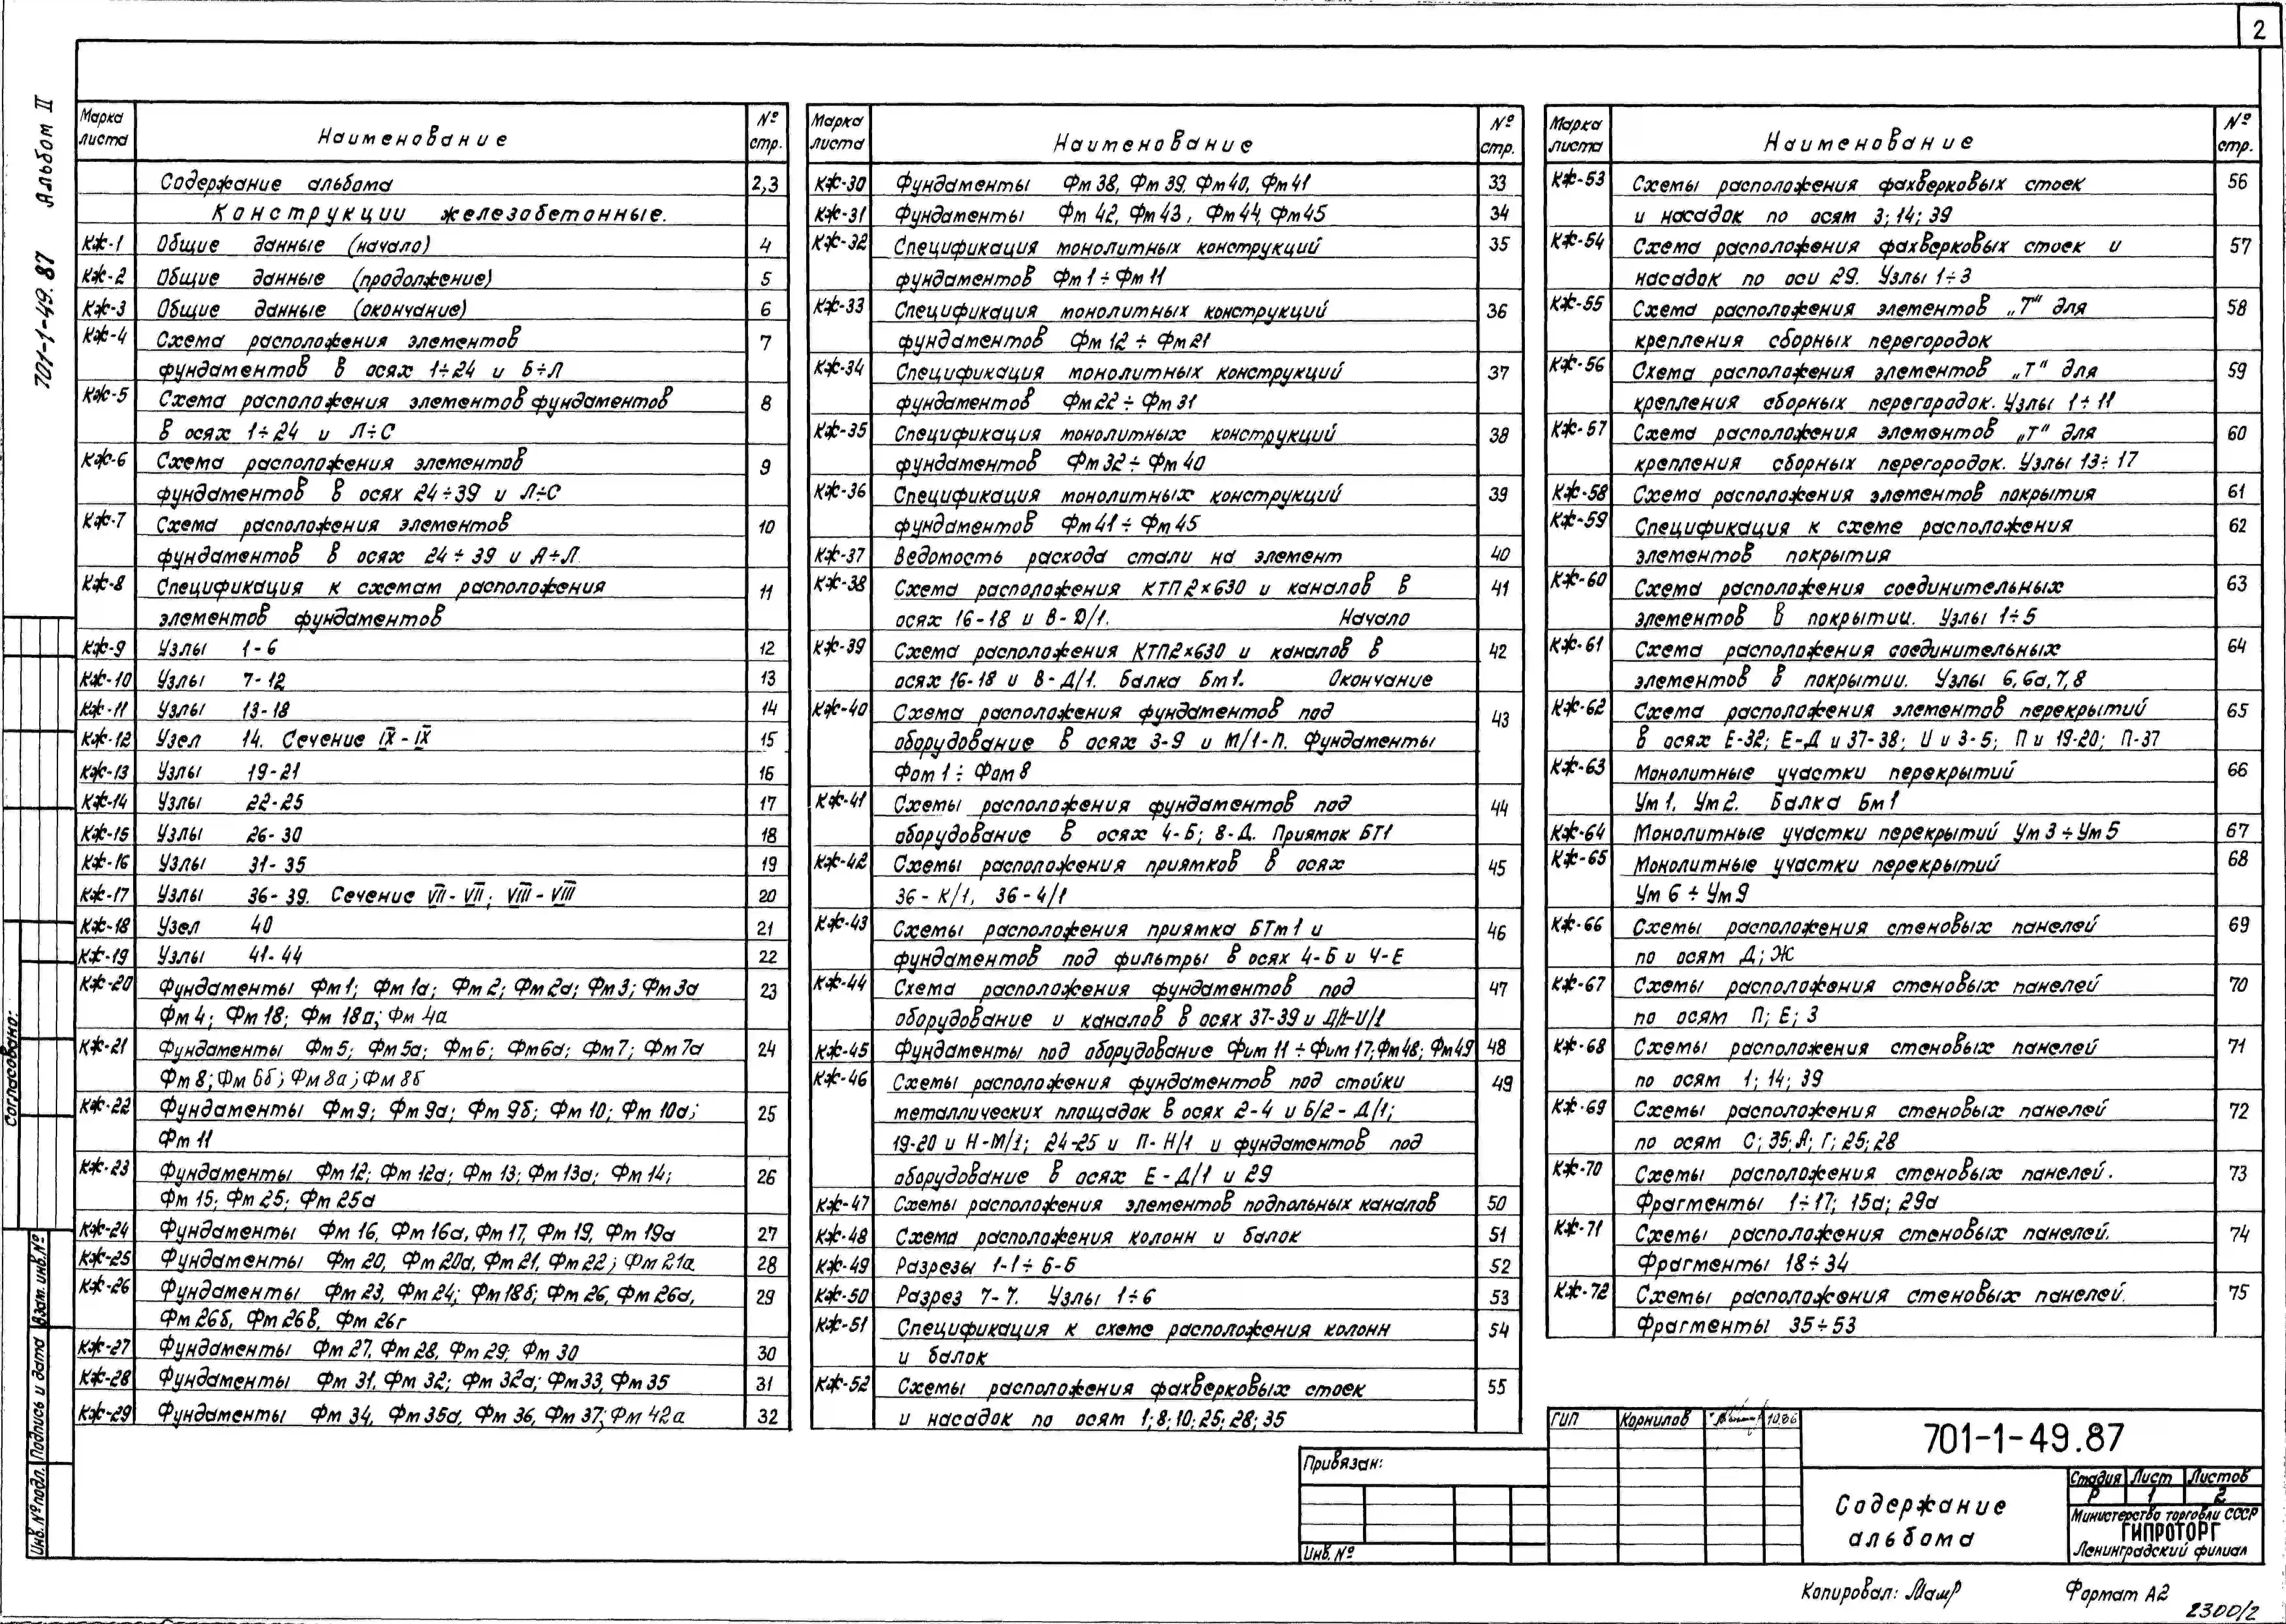 2
701-1-49.87 Альбом II
Марка листа Наименование № стр.
Содержание альбома 2,3
Конструкции железобетонные.
КЖ-1 Общие данные (начало) 4
КЖ-2 Общие данные (продолжение) 5
КЖ-3 Общие данные (окончание) 6
КЖ-4 Схема расположения элементов 7
фундаментов в осях 1÷24 и Б÷Л
КЖ-5 Схема расположения элементов фундаментов 8
в осях 1÷24 и Л÷С
КЖ-6 Схема расположения элементов 9
фундаментов в осях 24÷39 и Л÷С
КЖ-7 Схема расположения элементов 10
фундаментов в осях 24÷39 и А÷Л.
КЖ-8 Спецификация к схемам расположения 11
элементов фундаментов
КЖ-9 Узлы 1-6 12
КЖ-10 Узлы 7-12 13
КЖ-11 Узлы 13-18 14
КЖ-12 Узел 14. Сечение IX-IX 15
КЖ-13 Узлы 19-21 16
КЖ-14 Узлы 22-25 17
КЖ-15 Узлы 26-30 18
КЖ-16 Узлы 31-35 19
КЖ-17 Узлы 36-39. Сечение VII-VII; VIII-VIII 20
КЖ-18 Узел 40 21
КЖ-19 Узлы 41-44 22
КЖ-20 Фундаменты Фм1; Фм1а; Фм2; Фм2а; Фм3; Фм3а 23
Фм4; Фм18; Фм18а; Фм4а
КЖ-21 Фундаменты Фм5; Фм5а; Фм6; Фм6а; Фм7; Фм7а 24
Фм8; Фм6б; Фм8а; Фм8б
КЖ-22 Фундаменты Фм9; Фм9а; Фм9б; Фм10; Фм10а; 25
Фм11
КЖ-23 Фундаменты Фм12; Фм12а; Фм13; Фм13а; Фм14; 26
Фм15; Фм25; Фм25а
КЖ-24 Фундаменты Фм16, Фм16а, Фм17, Фм19, Фм19а 27
КЖ-25 Фундаменты Фм20, Фм20а, Фм21, Фм22; Фм21а 28
КЖ-26 Фундаменты Фм23, Фм24; Фм18б; Фм26, Фм26а, 29
Фм26б, Фм26в, Фм26г
КЖ-27 Фундаменты Фм27, Фм28, Фм29; Фм30 30
КЖ-28 Фундаменты Фм31, Фм32; Фм32а; Фм33, Фм35 31
КЖ-29 Фундаменты Фм34, Фм35а, Фм36, Фм37; Фм42а 32
Марка листа Наименование № стр.
КЖ-30 Фундаменты Фм38, Фм39, Фм40, Фм41 33
КЖ-31 Фундаменты Фм42, Фм43, Фм44, Фм45 34
КЖ-32 Спецификация монолитных конструкций 35
фундаментов Фм1÷Фм11
КЖ-33 Спецификация монолитных конструкций 36
фундаментов Фм12÷Фм21
КЖ-34 Спецификация монолитных конструкций 37
фундаментов Фм22÷Фм31
КЖ-35 Спецификация монолитных конструкций 38
фундаментов Фм32÷Фм40
КЖ-36 Спецификация монолитных конструкций 39
фундаментов Фм41÷Фм45
КЖ-37 Ведомость расхода стали на элемент 40
КЖ-38 Схема расположения КТП2×630 и каналов в 41
осях 16-18 и В-Д/1. Начало
КЖ-39 Схема расположения КТП2×630 и каналов в 42
осях 16-18 и В-Д/1. Балка Бм1. Окончание
КЖ-40 Схема расположения фундаментов под 43
оборудование в осях 3-9 и М/1-П. Фундаменты
Фом1÷Фом8
КЖ-41 Схемы расположения фундаментов под 44
оборудование в осях 4-Б; 8-Д. Приямок БТ1
КЖ-42 Схемы расположения приямков в осях 45
36-К/1, 36-4/1
КЖ-43 Схемы расположения приямка БТм1 и 46
фундаментов под фильтры в осях 4-Б и 4-Е
КЖ-44 Схема расположения фундаментов под 47
оборудование и каналов в осях 37-39 и Д/1-И/1
КЖ-45 Фундаменты под оборудование Фим11÷Фим17; Фм48; Фм49 48
КЖ-46 Схемы расположения фундаментов под стойки 49
металлических площадок в осях 2-4 и Б/2-Д/1;
19-20 и Н-М/1; 24-25 и П-Н/1 и фундаментов под
оборудование в осях Е-Д/1 и 29
КЖ-47 Схемы расположения элементов подпольных каналов 50
КЖ-48 Схема расположения колонн и балок 51
КЖ-49 Разрезы 1-1÷6-6 52
КЖ-50 Разрез 7-7. Узлы 1÷6 53
КЖ-51 Спецификация к схеме расположения колонн 54
и балок
КЖ-52 Схемы расположения фахверковых стоек 55
и насадок по осям 1; 8; 10; 25; 28; 35
Марка листа Наименование № стр.
КЖ-53 Схемы расположения фахверковых стоек 56
и насадок по осям 3; 14; 39
КЖ-54 Схема расположения фахверковых стоек и 57
насадок по оси 29. Узлы 1÷3
КЖ-55 Схема расположения элементов „Т“ для 58
крепления сборных перегородок
КЖ-56 Схема расположения элементов „Т“ для 59
крепления сборных перегородок. Узлы 1÷11
КЖ-57 Схема расположения элементов „Т“ для 60
крепления сборных перегородок. Узлы 13÷17
КЖ-58 Схема расположения элементов покрытия 61
КЖ-59 Спецификация к схеме расположения 62
элементов покрытия
КЖ-60 Схема расположения соединительных 63
элементов в покрытии. Узлы 1÷5
КЖ-61 Схема расположения соединительных 64
элементов в покрытии. Узлы 6, 6а, 7, 8
КЖ-62 Схема расположения элементов перекрытий 65
в осях Е-32; Е-Д и 37-38; И и 3-5; П и 19-20; П-37
КЖ-63 Монолитные участки перекрытий 66
Ум1, Ум2. Балка Бм1
КЖ-64 Монолитные участки перекрытий Ум3÷Ум5 67
КЖ-65 Монолитные участки перекрытий 68
Ум6÷Ум9
КЖ-66 Схемы расположения стеновых панелей 69
по осям Д; Ж
КЖ-67 Схемы расположения стеновых панелей 70
по осям П; Е; 3
КЖ-68 Схемы расположения стеновых панелей 71
по осям 1; 14; 39
КЖ-69 Схемы расположения стеновых панелей 72
по осям С; 35; А; Г; 25; 28
КЖ-70 Схемы расположения стеновых панелей. 73
Фрагменты 1÷17; 15а; 29а
КЖ-71 Схемы расположения стеновых панелей. 74
Фрагменты 18÷34
КЖ-72 Схемы расположения стеновых панелей. 75
Фрагменты 35÷53
Согласовано:
Взам. инв.№
Подпись и дата
Инв.№ подл.
Привязан:
Инв.№
ГИП Корнилов 10.86
701-1-49.87
Содержание
альбома
Стадия Лист Листов
Р 1 2
Министерство торговли СССР
ГИПРОТОРГ
Ленинградский филиал
Копировал:
Формат А2
2300/2